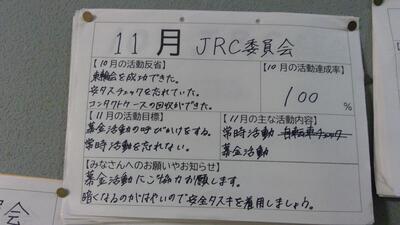 11月 JRC委員会
【10月の活動反省】
東輪会を成功できた。
安タスチェックを忘れていた。
コンタクトケースの回収ができた。
【10月の活動達成率】
100%
【11月の活動目標】
募金活動の呼びかけをする。
常時活動を忘れない。
【11月の主な活動内容】
常時活動 自転車チェック
募金活動
【みなさんへのお願いやお知らせ】
募金活動にご協力お願いします。
暗くなるのがはやいので安全タスキを着用しましょう。
員会